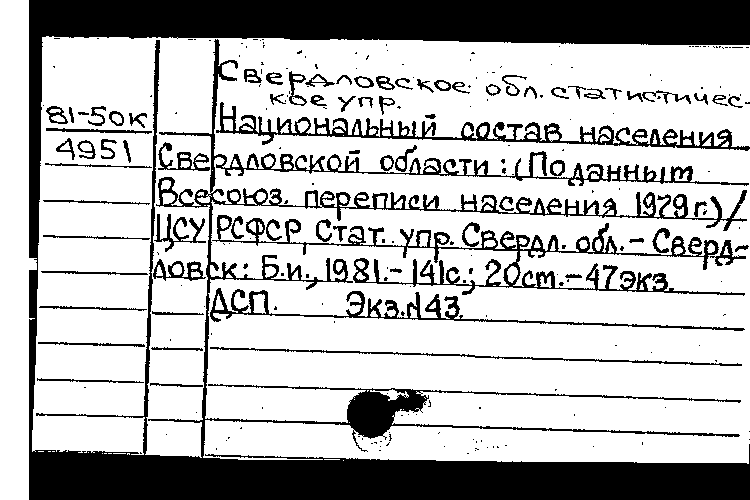 Свердловское обл. статистичес-
кое упр.
81-50к
4951
Национальный состав населения
Свердловской области: (По данным
Всесоюз. переписи населения 1979 г.) /
ЦСУ РСФСР, Стат. упр. Свердл. обл. - Сверд-
ловск: Б.и., 1981. - 141с.; 20см. - 47экз.
ДСП. Экз.N43.